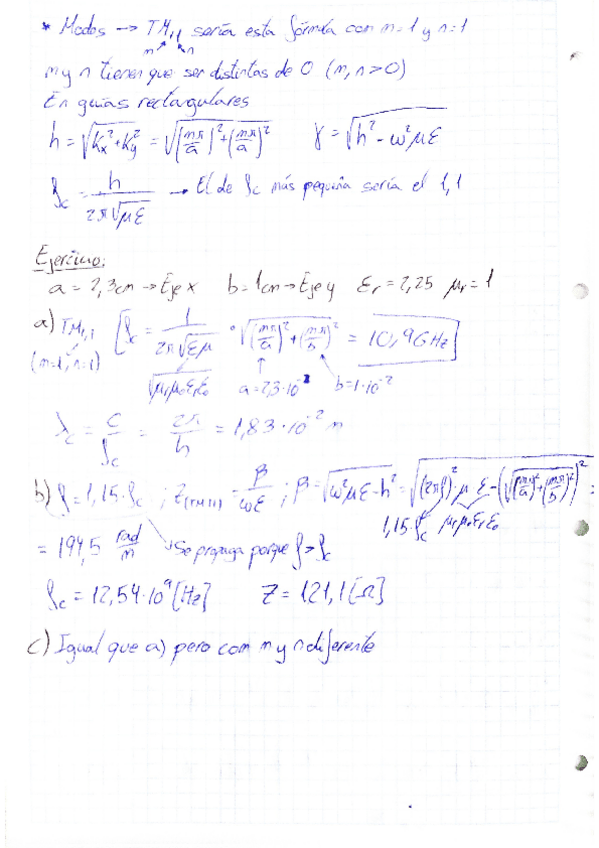 * Modos → TM₁,₁ sería esta fórmula con m=1 y n=1
m n
m y n tienen que ser distintas de 0 (m, n > 0)
En guías rectangulares
h = √(kₓ² + k_y²) = √((mπ/a)² + (mπ/a)²)   γ = √(h² - ω²με)
f_c = h / (2π√(με)) → El de f_c más pequeña sería el 1,1
Ejercicio:
a = 2,3cm → Eje x   b = 1cm → Eje y   εr = 2,25   μr = 1
a) TM₁,₁   [f_c = 1 / (2π√(εμ)) · √((mπ/a)² + (mπ/b)²) = 10,9GHz]
(m=1, n=1)   √(μrμ₀εrε₀)   a = 2,3·10⁻²   b = 1·10⁻²
λ_c = c / f_c = 2π / h = 1,83·10⁻² m
b) f = 1,15·f_c ; Z(TM) = β / ωε ; β = √(ω²με - h²) = √((2πf)² μ ε - (√((mπ/a)² + (mπ/b)²))²) =
1,15·f_c   μrμ₀εrε₀
= 194,5 rad/m   ↳ Se propaga porque f > f_c
f_c = 12,54·10⁹ [Hz]   Z = 121,1 [Ω]
c) Igual que a) pero con m y n diferente